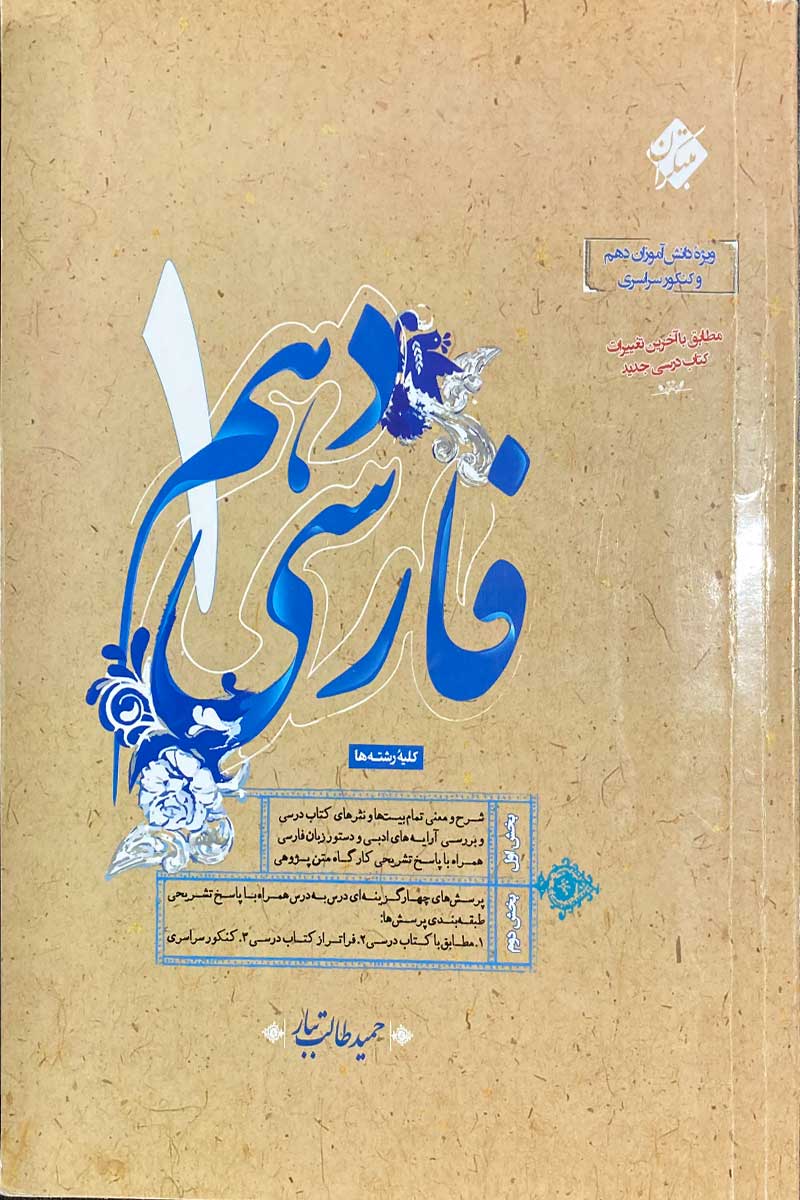 مبتکران
ویژه دانش‌آموزان دهم
و کنکور سراسری
مطابق با آخرین تغییرات
کتاب درسی جدید
فارسی دهم ۱
کلیهٔ رشته‌ها
بخش اول
شرح و معنی تمام بیت‌ها و نثرهای کتاب درسی
و بررسی آرایه‌های ادبی و دستور زبان فارسی
همراه با پاسخ تشریحی کارگاه متن‌پژوهی
بخش دوم
پرسش‌های چهارگزینه‌ای درس به درس همراه با پاسخ تشریحی
طبقه‌بندی پرسش‌ها:
۱. مطابق با کتاب درسی ۲. فراتر از کتاب درسی ۳. کنکور سراسری
حمید طالب تبار